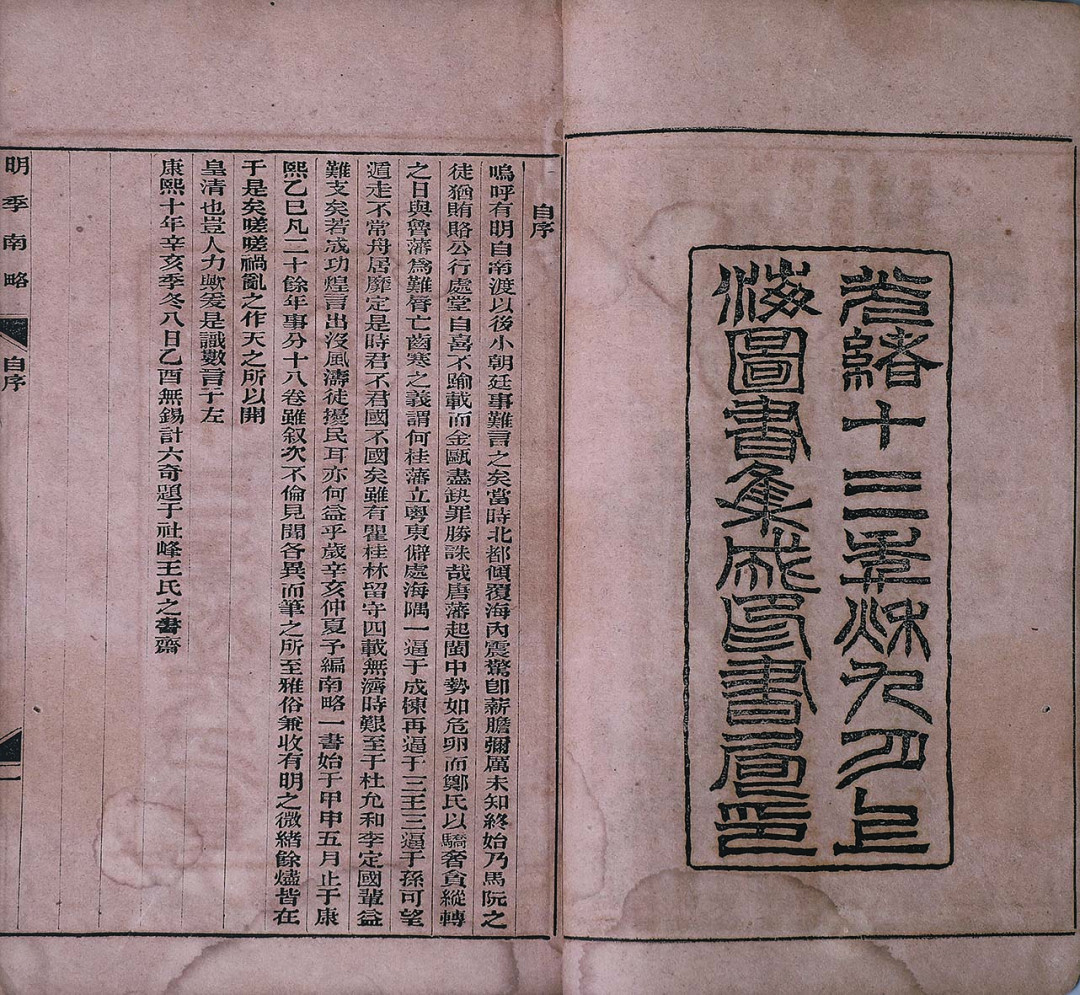 光緒十三年秋九月上
海圖書集成印書局印
自序
嗚呼有明自南渡以後小朝廷事難言之矣當時北都傾覆海內震驚卽薪膽彌厲未知終始乃馬阮之
徒猶賄賂公行處堂自喜不踰載而金甌盡缺罪勝誅哉唐藩起閩中勢如危卵而鄭氏以驕奢貪縱轉
之日與魯藩爲難脣亡齒寒之義謂何桂藩立粵東僻處海隅一逼于成棟再逼于三王三逼于孫可望
遁走不常舟居靡定是時君不君國不國矣雖有瞿桂林留守四載無濟時艱至于杜允和李定國輩益
難支矣若成功煌言出沒風濤徒擾民耳亦何益乎歲辛亥仲夏予編南略一書始于甲申五月止于康
熙乙巳凡二十餘年事分十八卷雖叙次不倫見聞各異而筆之所至雅俗兼收有明之微緒餘燼皆在
于是矣嗟嗟禍亂之作天之所以開
皇清也豈人力歟爰是識數言于左
康熙十年辛亥季冬八日乙酉無錫計六奇題于社峰王氏之書齋
明季南略
自序
一